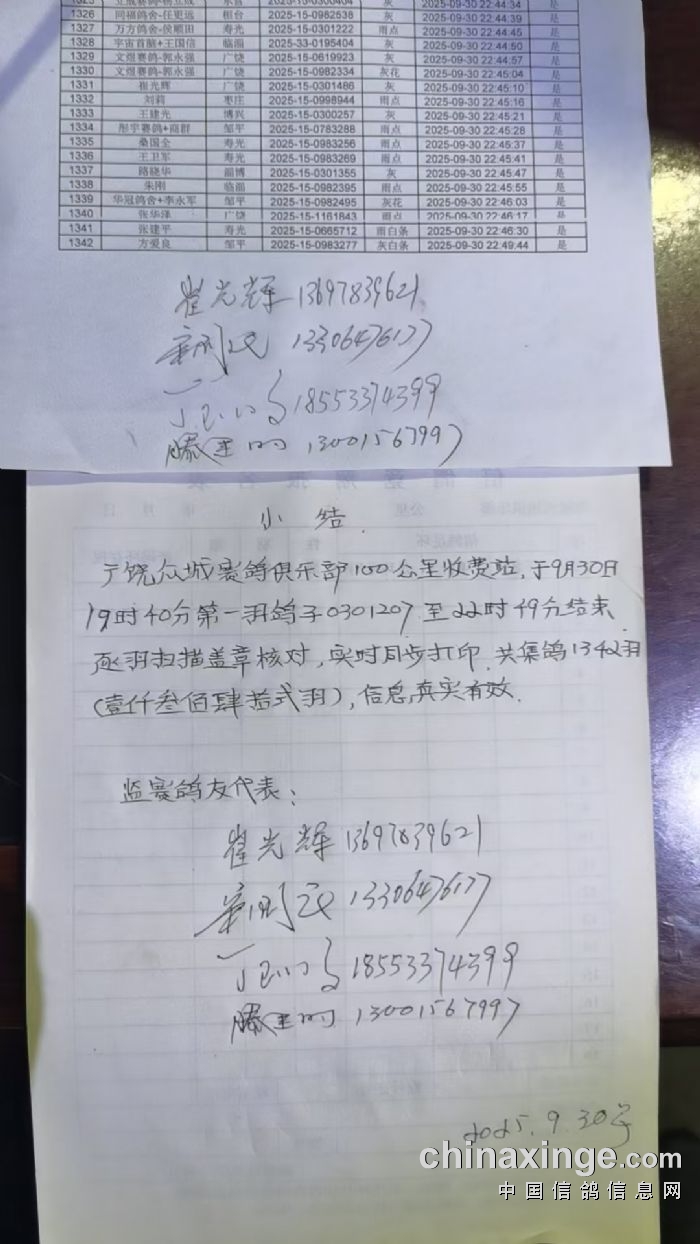 1326 同福鸽舍-任更远 桓台 2025-15-0982538 灰 2025-09-30 22:44:39 是
1327 万方鸽舍-侯顺田 寿光 2025-15-0301222 雨点 2025-09-30 22:44:45 是
1328 宇宙首脑+王国信 临淄 2025-33-0195404 灰 2025-09-30 22:44:50 是
1329 文煜赛鸽-郭永强 广饶 2025-15-0619923 灰 2025-09-30 22:44:57 是
1330 文煜赛鸽-郭永强 广饶 2025-15-0982334 灰花 2025-09-30 22:45:04 是
1331 崔光辉 广饶 2025-15-0301486 灰 2025-09-30 22:45:10 是
1332 刘莉 枣庄 2025-15-0998944 雨点 2025-09-30 22:45:16 是
1333 王建光 博兴 2025-15-0300257 灰 2025-09-30 22:45:21 是
1334 彤宇赛鸽+商群 邹平 2025-15-0783288 雨点 2025-09-30 22:45:28 是
1335 桑国全 寿光 2025-15-0983256 雨点 2025-09-30 22:45:37 是
1336 王卫军 寿光 2025-15-0983269 雨点 2025-09-30 22:45:41 是
1337 路晓华 淄博 2025-15-0301355 灰 2025-09-30 22:45:47 是
1338 朱刚 临淄 2025-15-0982395 雨点 2025-09-30 22:45:55 是
1339 华冠鸽舍+李永军 邹平 2025-15-0982495 灰花 2025-09-30 22:46:03 是
1340 张华泽 广饶 2025-15-1161843 雨点 2025-09-30 22:46:17 是
1341 张建平 寿光 2025-15-0665712 雨白条 2025-09-30 22:46:30 是
1342 方爱良 邹平 2025-15-0983277 灰白条 2025-09-30 22:49:44 是
崔光辉 13697839621
13306476177
18553374399
滕 13001567997
小 结
广饶众城赛鸽俱乐部100公里收费站,于9月30日
19时40分第一羽鸽子0301207至22时49分结束
逐羽扫描盖章核对,实时同步打印.共集鸽1342羽
(壹仟叁佰肆拾弍羽),信息真实有效.
监赛鸽友代表:
崔光辉 13697839621
13306476177
18553374399
滕 13001567997
2025.9.30号
chinaxinge.com
中国信鸽信息网